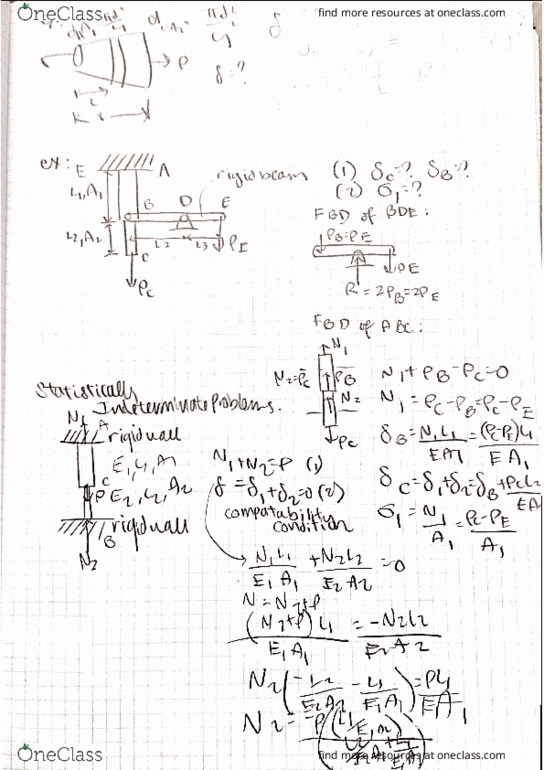 OneClass
find more resources at oneclass.com
P
δ=?
ex: E A
rigid beam
(1) δc=? δB=?
(2) σ1=?
L1,A1
B D E
FBD of BDE:
L2,A2
L2 L3 PE
C
Pc
PB=PE
PE
R=2PB=2PE
FBD of ABC:
N1
N2=Pc PB
N2
Pc
N1+PB-Pc=0
N1=Pc-PB=Pc-PE
δB=N1L1/EA1=(Pc-PE)L1/EA1
δc=δ1+δ2=δB+PcL2/EA
σ1=N1/A1=Pc-PE/A1
Statistically
Indeterminate Problems.
N1 A
rigid wall
E1,L1,A1
P E2,L2,A2
rigid wall
B
N2
N1+N2=P (1)
δ=δ1+δ2=0(2)
compatability
condition
N1L1/E1A1+N2L2/E2A2=0
N=N2+P
(N2+P)L1/E1A1=-N2L2/E2A2
N2(-L2/E2A2-L1/E1A1)=PL1/EA1
N2=
OneClass
find more resources at oneclass.com